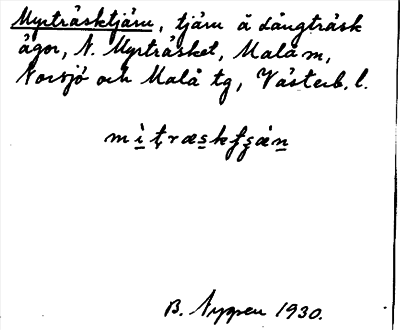 Myrträsktjärn, tjärn å Långträsk
ägor, N. Myrträsket, Malå m,
Norsjö och Malå tg, Västerb. l.
B. Nygren 1930.